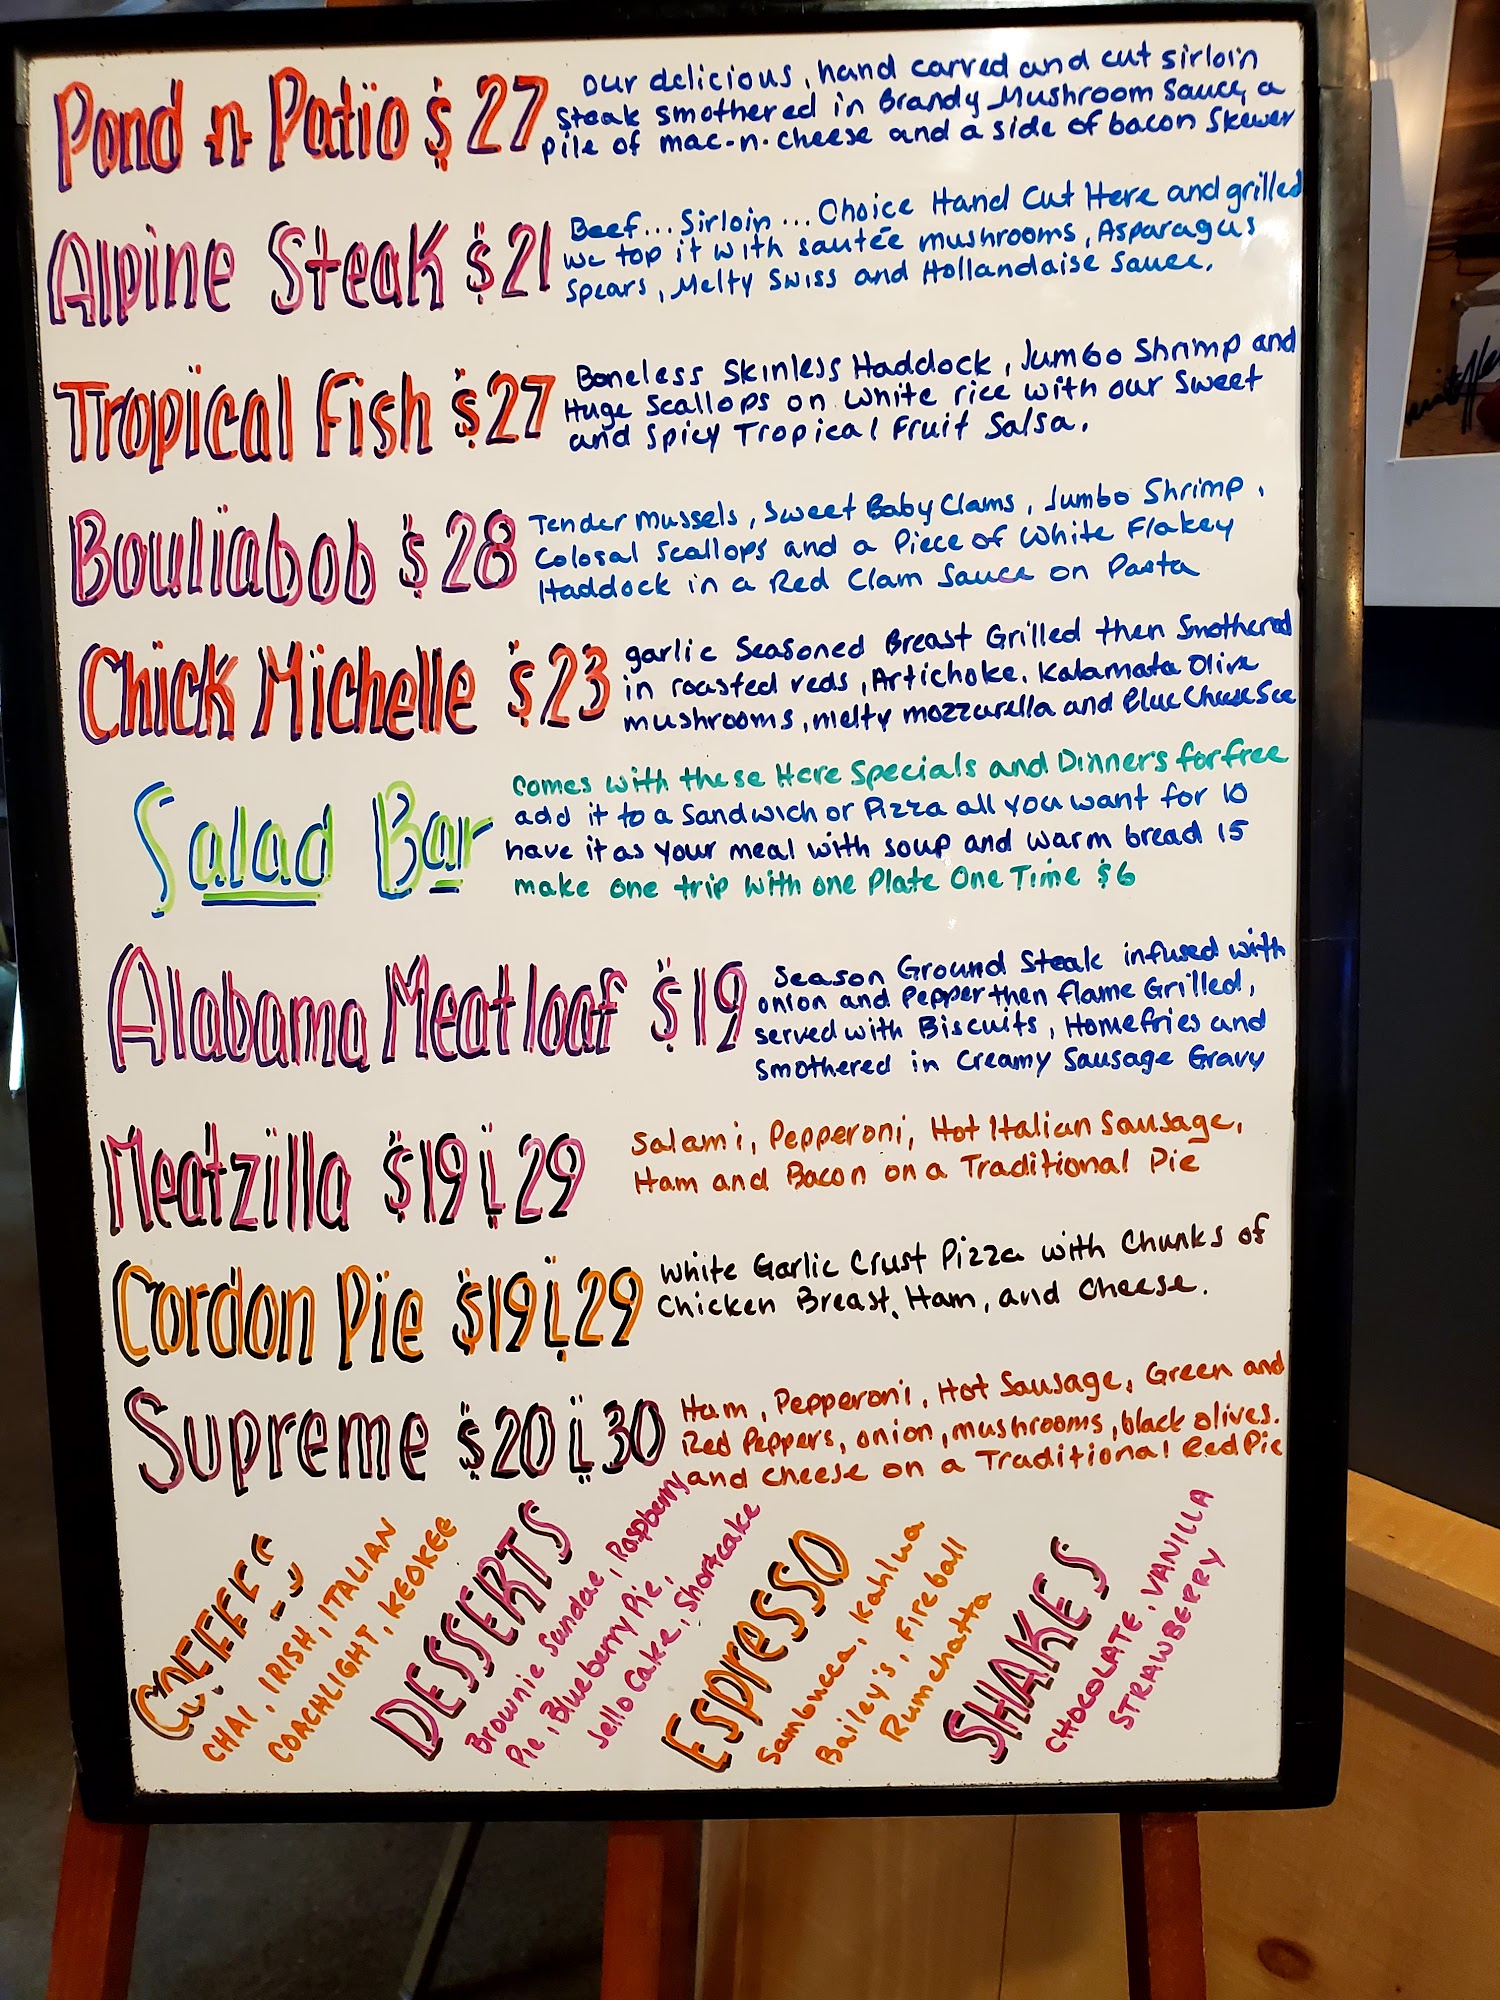 Pond n Patio $27
our delicious, hand carved and cut sirloin
steak smothered in Brandy Mushroom Sauce, a
pile of mac-n-cheese and a side of bacon Skewer
Alpine Steak $21
Beef... Sirloin... Choice Hand Cut Here and grilled
we top it with sautée mushrooms, Asparagus
Spears, Melty Swiss and Hollandaise Sauce.
Tropical Fish $27
Boneless Skinless Haddock, Jumbo Shrimp and
Huge Scallops on white rice with our Sweet
and Spicy Tropical Fruit Salsa.
Bouliabob $28
Tender Mussels, Sweet Baby Clams, Jumbo Shrimp,
Colosal Scallops and a Piece of White Flakey
Haddock in a Red Clam Sauce on Pasta
Chick Michelle $23
garlic Seasoned Breast Grilled then Smothered
in roasted reds, Artichoke, Kalamata Olive
mushrooms, melty mozzarella and Blue Cheese Sce
Salad Bar
Comes with these Here Specials and Dinners for free
add it to a Sandwich or Pizza all you want for 10
have it as your meal with soup and warm bread 15
make one trip with one Plate One Time $6
Alabama Meatloaf $19
Season Ground Steak infused with
onion and Pepper then flame Grilled,
served with Biscuits, Homefries and
Smothered in Creamy Sausage Gravy
Meatzilla $19 L 29
Salami, Pepperoni, Hot Italian Sausage,
Ham and Bacon on a Traditional Pie
Cordon Pie $19 L 29
White Garlic Crust Pizza with Chunks of
Chicken Breast, Ham, and Cheese.
Supreme $20 L 30
Ham, Pepperoni, Hot Sausage, Green and
Red Peppers, onion, mushrooms, black olives.
and Cheese on a Traditional Red Pie
COFFEES
CHAI, IRISH, ITALIAN
COACHLIGHT, KEOKEE
DESSERTS
Brownie Sundae, Raspberry
Pie, Blueberry Pie,
Jello Cake, Shortcake
ESPRESSO
Sambucca, Kahlua
Bailey's, Fireball
Rumchatta
SHAKES
CHOCOLATE, VANILLA
STRAWBERRY